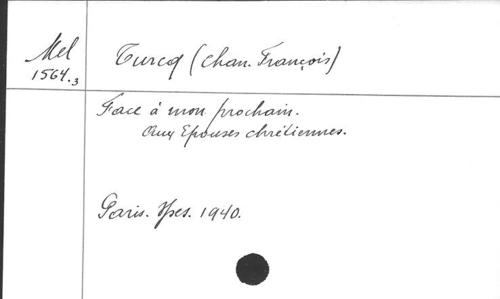 Mel
1564.3
Turcq (Chan. François)
Face à mon prochain.
Aux Epouses chrétiennes.
Paris. Spes. 1940.